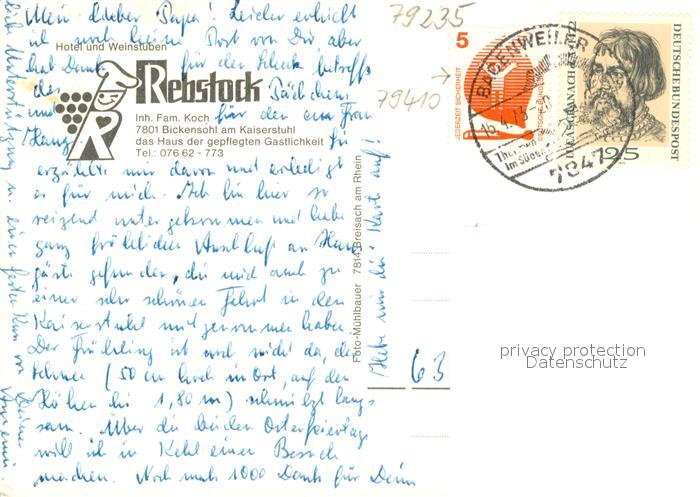 Mein lieber Papa! Leider erhielt
ich noch keine Post von Dir aber
hab Dank für den Scheck betreffs
des Päckchens
und für den von Frau
Haug. Ju
erzählte mir davon und erledigt
es für mich. Ich bin hier so
reizend untergekommen und habe
ganz fröhlichen Anschluß an Haus-
gäste gefunden, die mich auch zu
einer sehr schönen Fahrt in den
Kaiserstuhl mitgenommen haben.
Der Frühling ist noch nicht da, der
Schnee (50 cm hoch im Ort, auf den
Höhen bis 1,80 m) schmilzt lang-
sam. Über die beiden Osterfeiertage
will ich in Kehl einen Besuch
machen. Noch mals 1000 Dank für Deine
liebe Unterstützung
Deiner
Annemi
Hebe mir die Karte auf!
Hotel und Weinstuben
Rebstock
R
Inh. Fam. Koch
7801 Bickensohl am Kaiserstuhl
das Haus der gepflegten Gastlichkeit
Tel.: 076 62 - 773
Foto-Mühlbauer 7814 Breisach am Rhein
79235
79410
63
5
JEDERZEIT SICHERHEIT
DEUTSCHE BUNDESPOST
LUCAS CRANACH
DEUTSCHE BUNDESPOST
25
BADENWEILER
16.4.73
im Süden
7847
privacy protection
Datenschutz